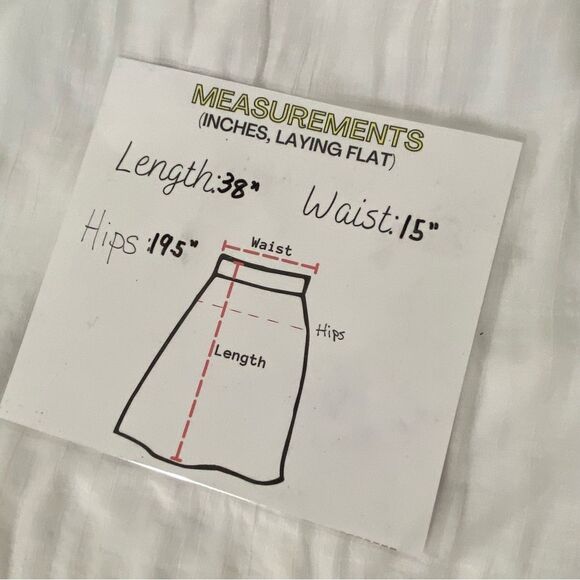 MEASUREMENTS
(INCHES, LAYING FLAT)
Length: 38"
Waist: 15"
Hips: 19.5"
Waist
Hips
Length